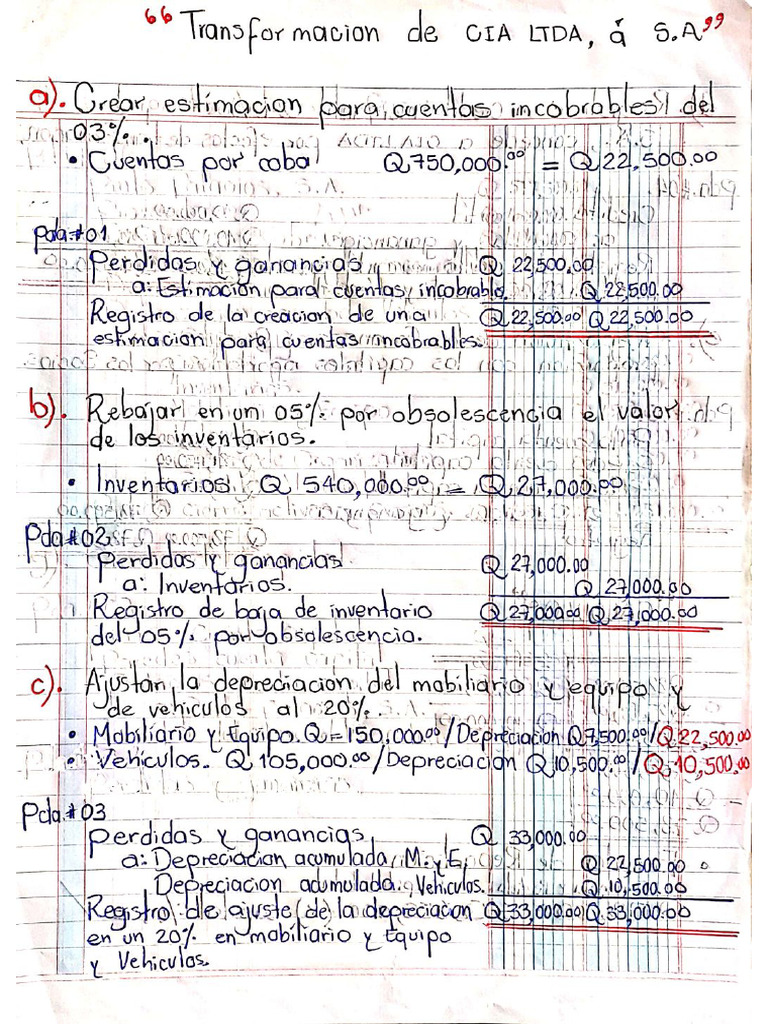 “Transformacion de CIA LTDA, á S.A”
a). Crear estimacion para cuentas incobrables del
03%.
• Cuentas por coba Q750,000.00 = Q22,500.00
pda#01
Perdidas y ganancias Q 22,500.00
a: Estimacion para cuentas incobrable. Q 22,500.00
Registro de la creacion de una Q 22,500.00 Q 22,500.00
estimacion para cuentas incobrables.
b). Rebajar en un 05% por obsolescencia el valor
de los inventarios.
• Inventarios Q 540,000.00 = Q27,000.00
Pda#02
Perdidas y ganancias Q 27,000.00
a: Inventarios. Q 27,000.00
Registro de baja de inventario Q 27,000.00 Q 27,000.00
del 05% por obsolescencia.
c). Ajustan la depreciacion del mobiliario y equipo y
de vehiculos al 20%.
• Mobiliario y Equipo. Q=150,000.00/Depreciacion Q7,500.00/Q22,500.00
• Vehiculos. Q 105,000.00/Depreciacion Q 10,500.00/Q 10,500.00
Pda#03
perdidas y ganancias Q 33,000.00
a: Depreciacion acumulada M. y E, Q 22,500.00
Depreciacion acumulada Vehiculos. Q 10,500.00
Registro de ajuste de la depreciacion Q33,000.00 Q 33,000.00
en un 20% en mobiliario y Equipo
y Vehiculos.